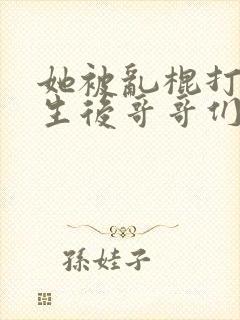 她被亂棍打
生後哥哥们
孫娃子